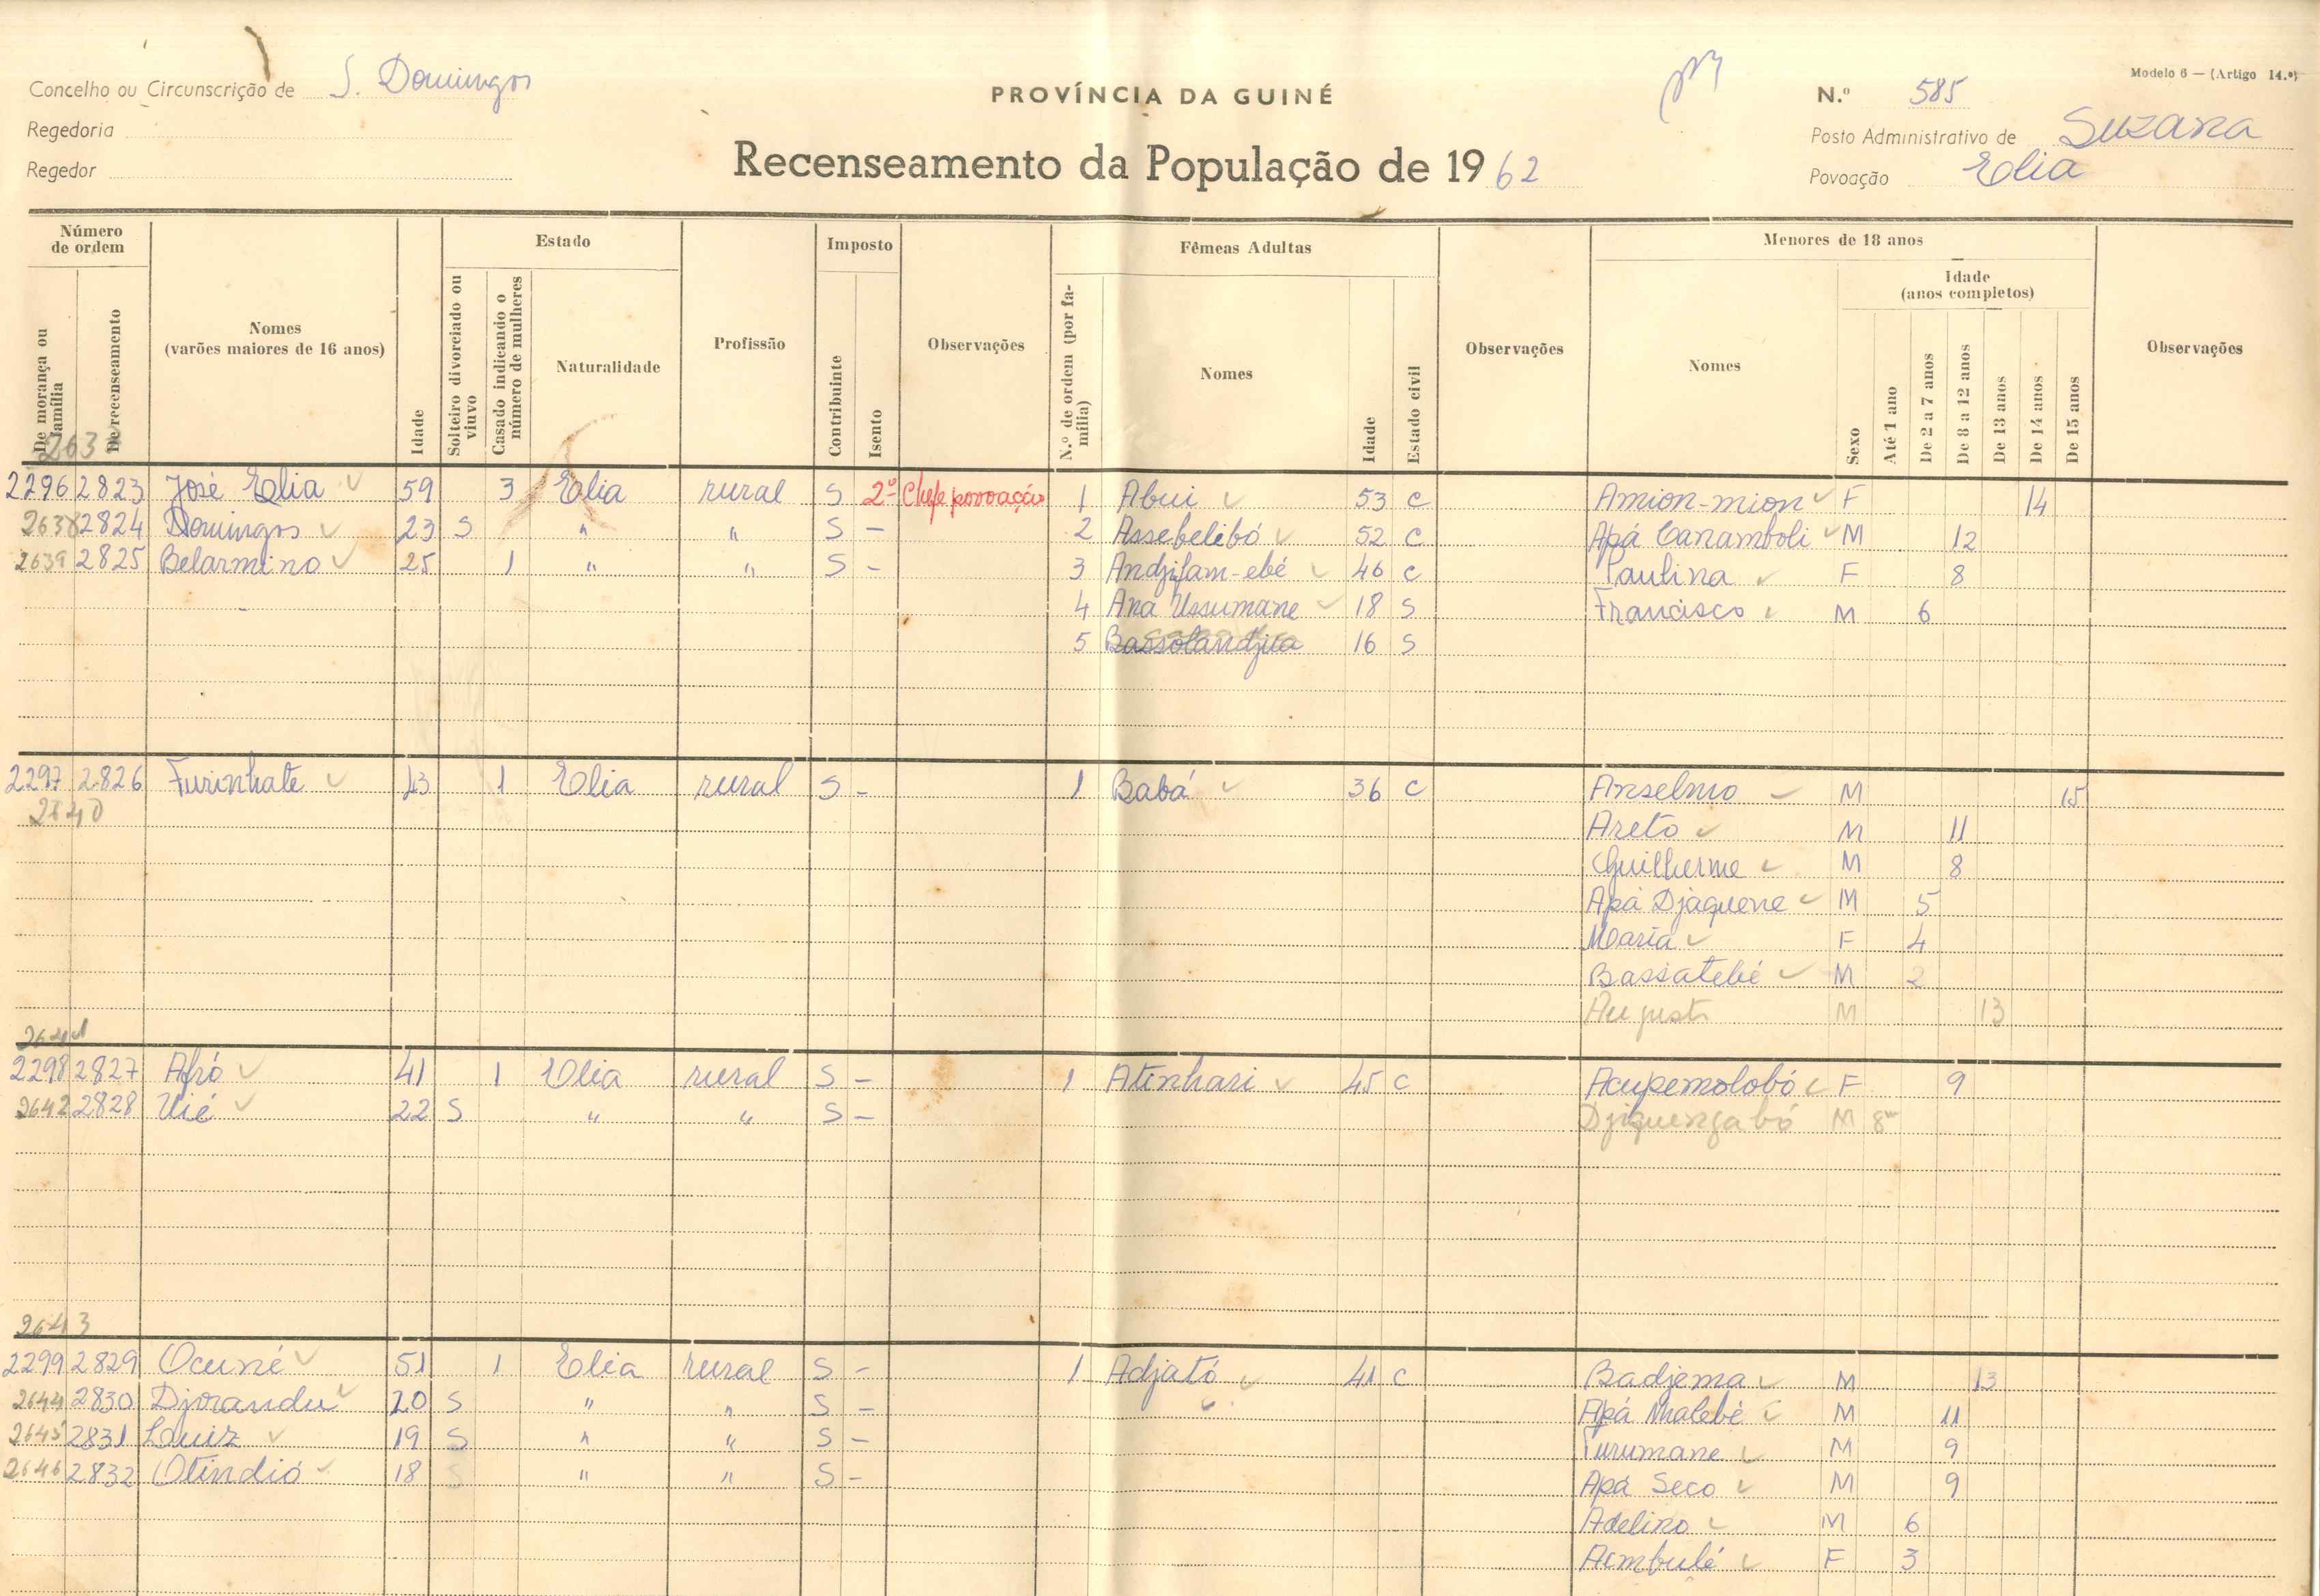 Modelo 6 — (Artigo 14.º)
Concelho ou Circunscrição de S. Domingos
PROVÍNCIA DA GUINÉ
N.º 585
Regedoria
Posto Administrativo de Suzana
Regedor
Recenseamento da População de 1962
Povoação Elia
Número de ordem
Estado
Imposto
Fêmeas Adultas
Menores de 18 anos
Idade (anos completos)
De morança ou família
De recenseamento
Nomes (varões maiores de 16 anos)
Idade
Solteiro divorciado ou viuvo
Casado indicando o número de mulheres
Naturalidade
Profissão
Contribuinte
Isento
Observações
N.º de ordem (por família)
Nomes
Idade
Estado civil
Observações
Nomes
Sexo
Até 1 ano
De 2 a 7 anos
De 8 a 12 anos
De 13 anos
De 14 anos
De 15 anos
Observações
2296 2823 José Elia 59 3 Elia rural S 2º Chefe povoação 1 Abui 53 C Amion-mion F 14
2638 2824 Domingos 23 S " " S - 2 Assebelibó 52 C Apá Canamboli M 12
2639 2825 Belarmino 25 1 " " S - 3 Andjifam-ebé 46 C Paulina F 8
4 Ana Ussumane 18 S Francisco M 6
5 Bassolandjia 16 S
2297 2826 Furinhate 43 1 Elia rural S - 1 Babá 36 C Anselmo M 15
2640 Areto M 11
Guilherme M 8
Apá Djaquene M 5
Maria F 4
Bassatebé M 2
August M 13
2641
2298 2827 Afró 41 1 Elia rural S - 1 Atinhari 45 C Acupemolobó F 9
2642 2828 Uié 22 S " " S - Djiquengabó M 8m
2643
2299 2829 Ocuné 51 1 Elia rural S - 1 Adjató 41 C Badjema M 13
2644 2830 Djorandu 20 S " " S - Apá Nhalebé M 11
2645 2831 Luiz 19 S " " S - Turumane M 9
2646 2832 Otindió 18 S " " S - Apá Seco M 9
Adelino M 6
Acmbulé F 3